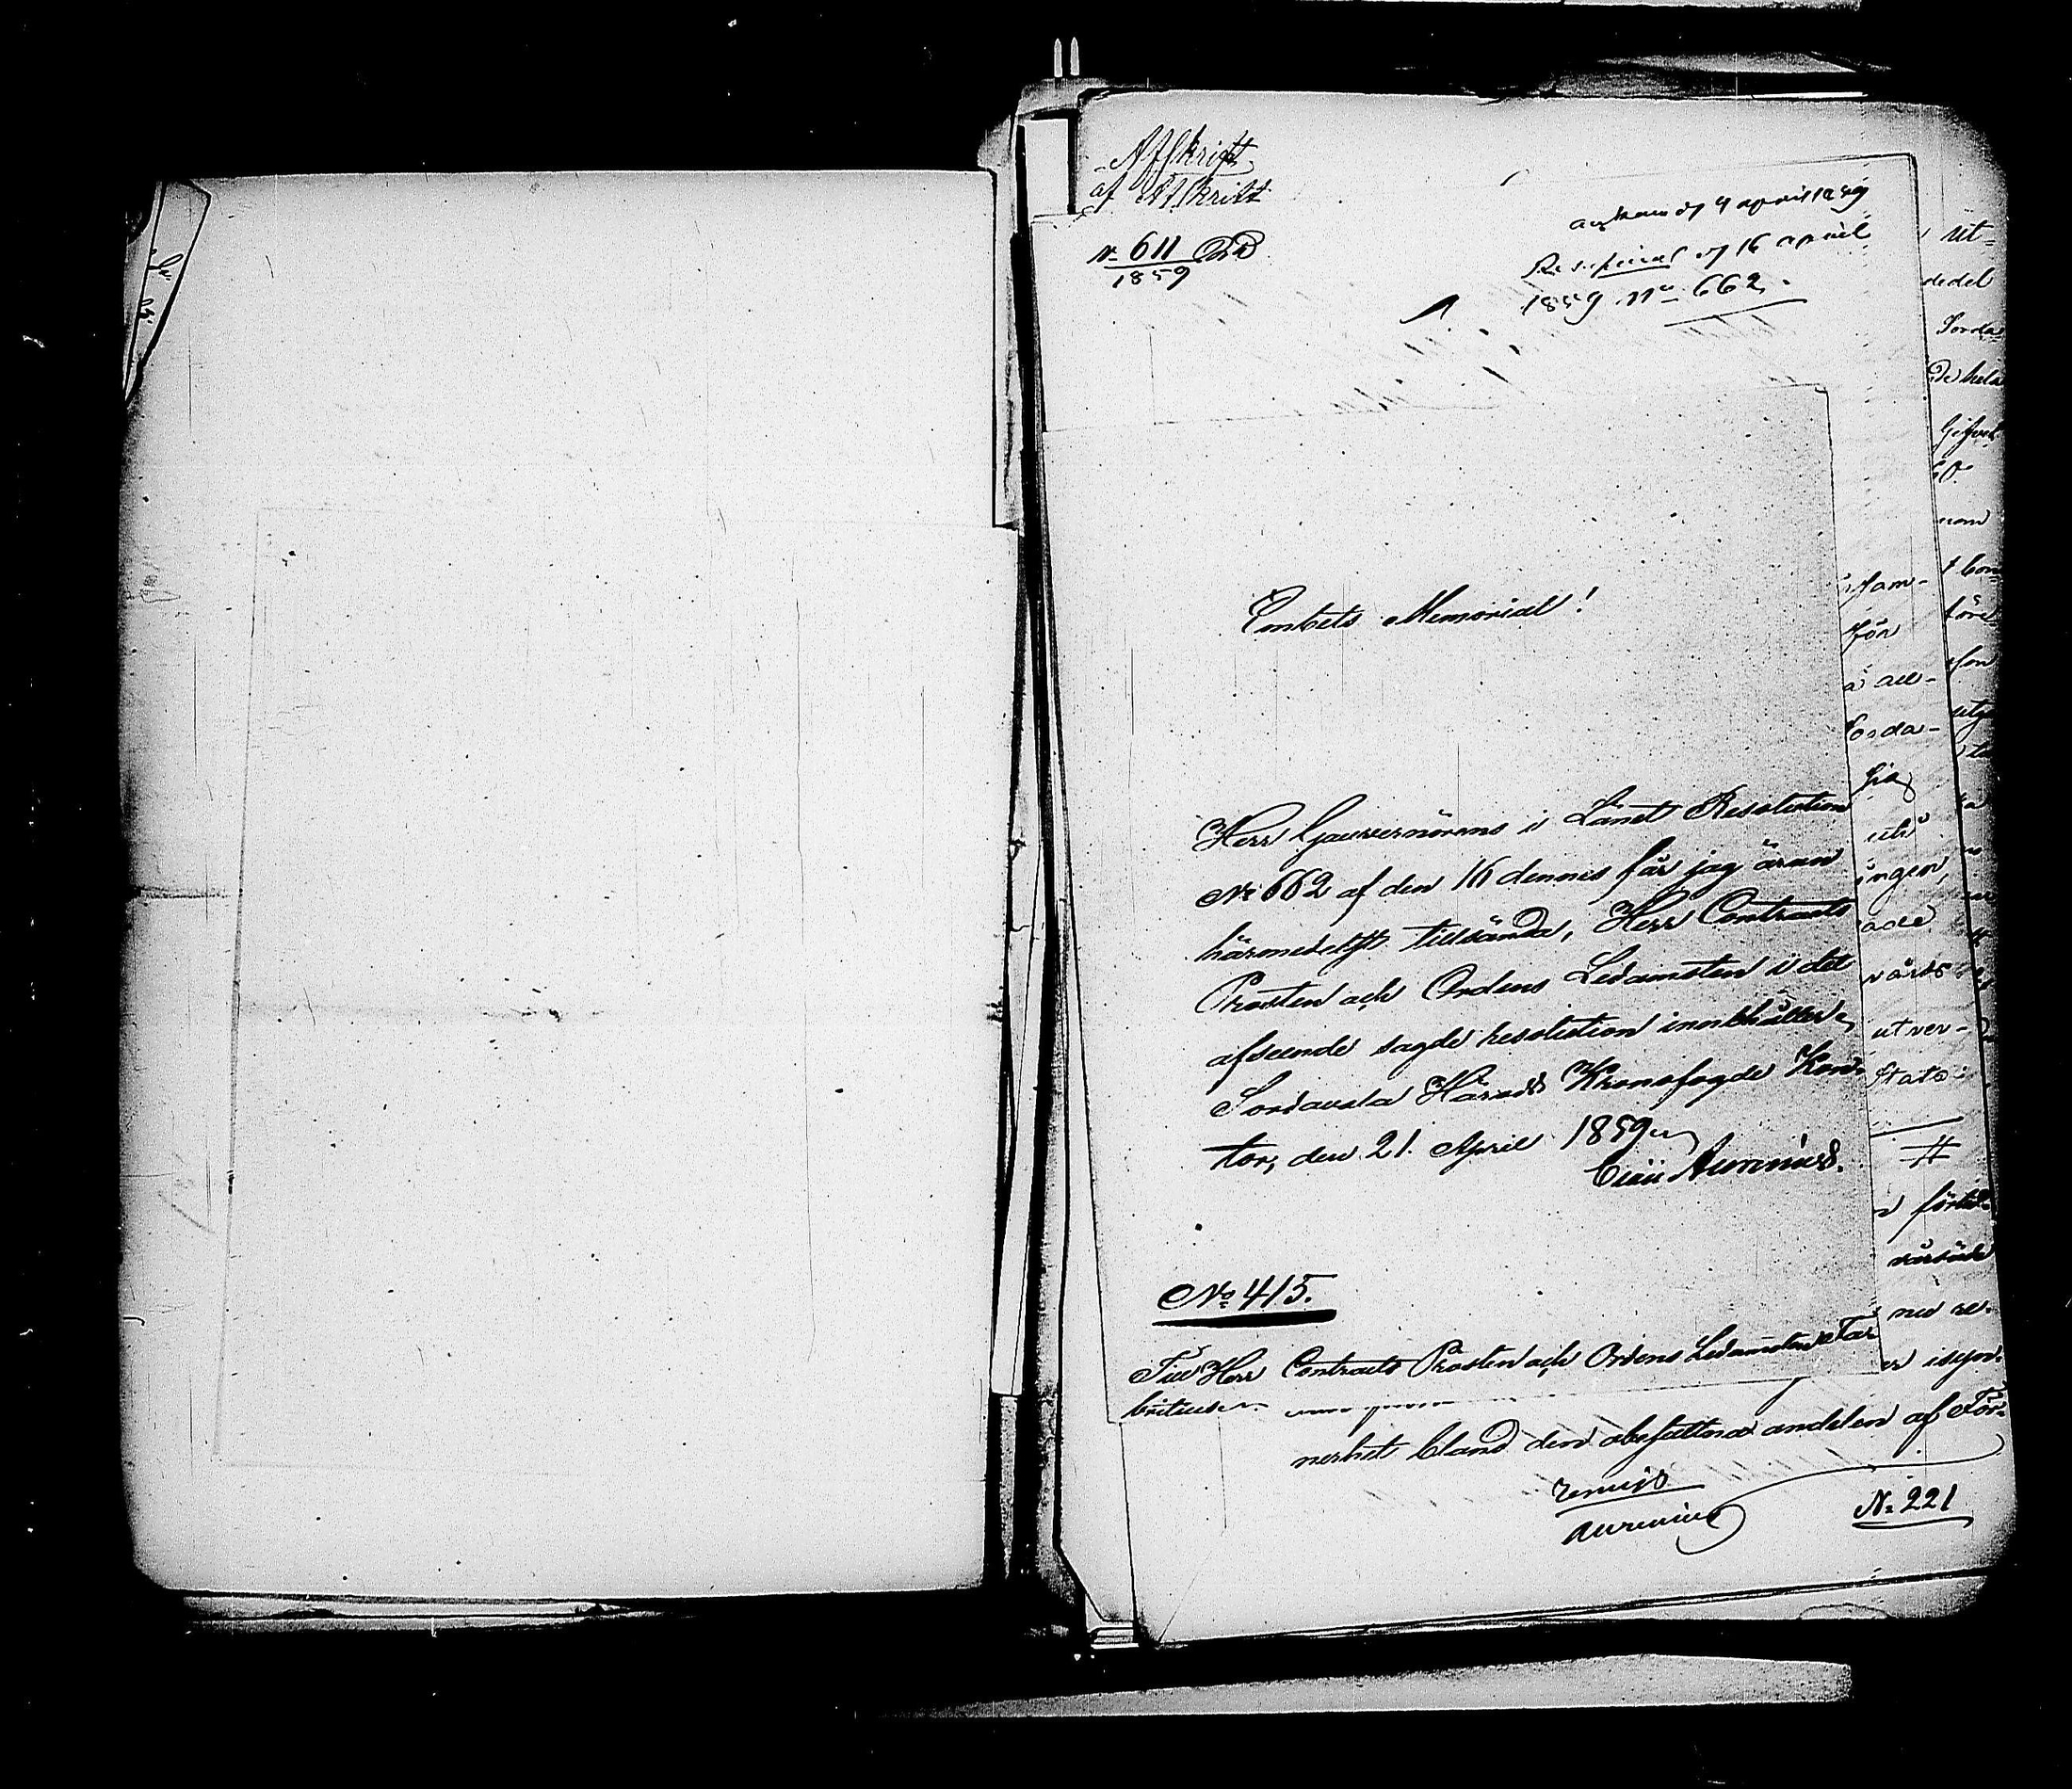 Afskrift
af Afskrift
No 611 BD
1859
ankom d 9 april 1859
Resolverat d 16 april
1859 No 662.
Embets Memorial!
Herr Gouvernörens i Länet Resolution
No 662 af den 16 dennes får jag äran
härmedelst tillsända, Herr Contracts
Prosten och Ordens Ledamoten i det
afseende sagde resolution innehåller,
Sordavala Härads Kronofogde Kon-
tor, den 21. April 1859.
Aurenius.
No 415.
Till Herr Contracts Prosten och Ordens Ledamoten Fa-
britius
nerhet bland den obesuttna andelen af För-
remiss
Aurenius
No 221
ut-
dedel
Sorda-
hela
60.
nom
för
a all-
Sorda-
lig
uti
ingen,
vårds
utver-
Stats
#
nu re-